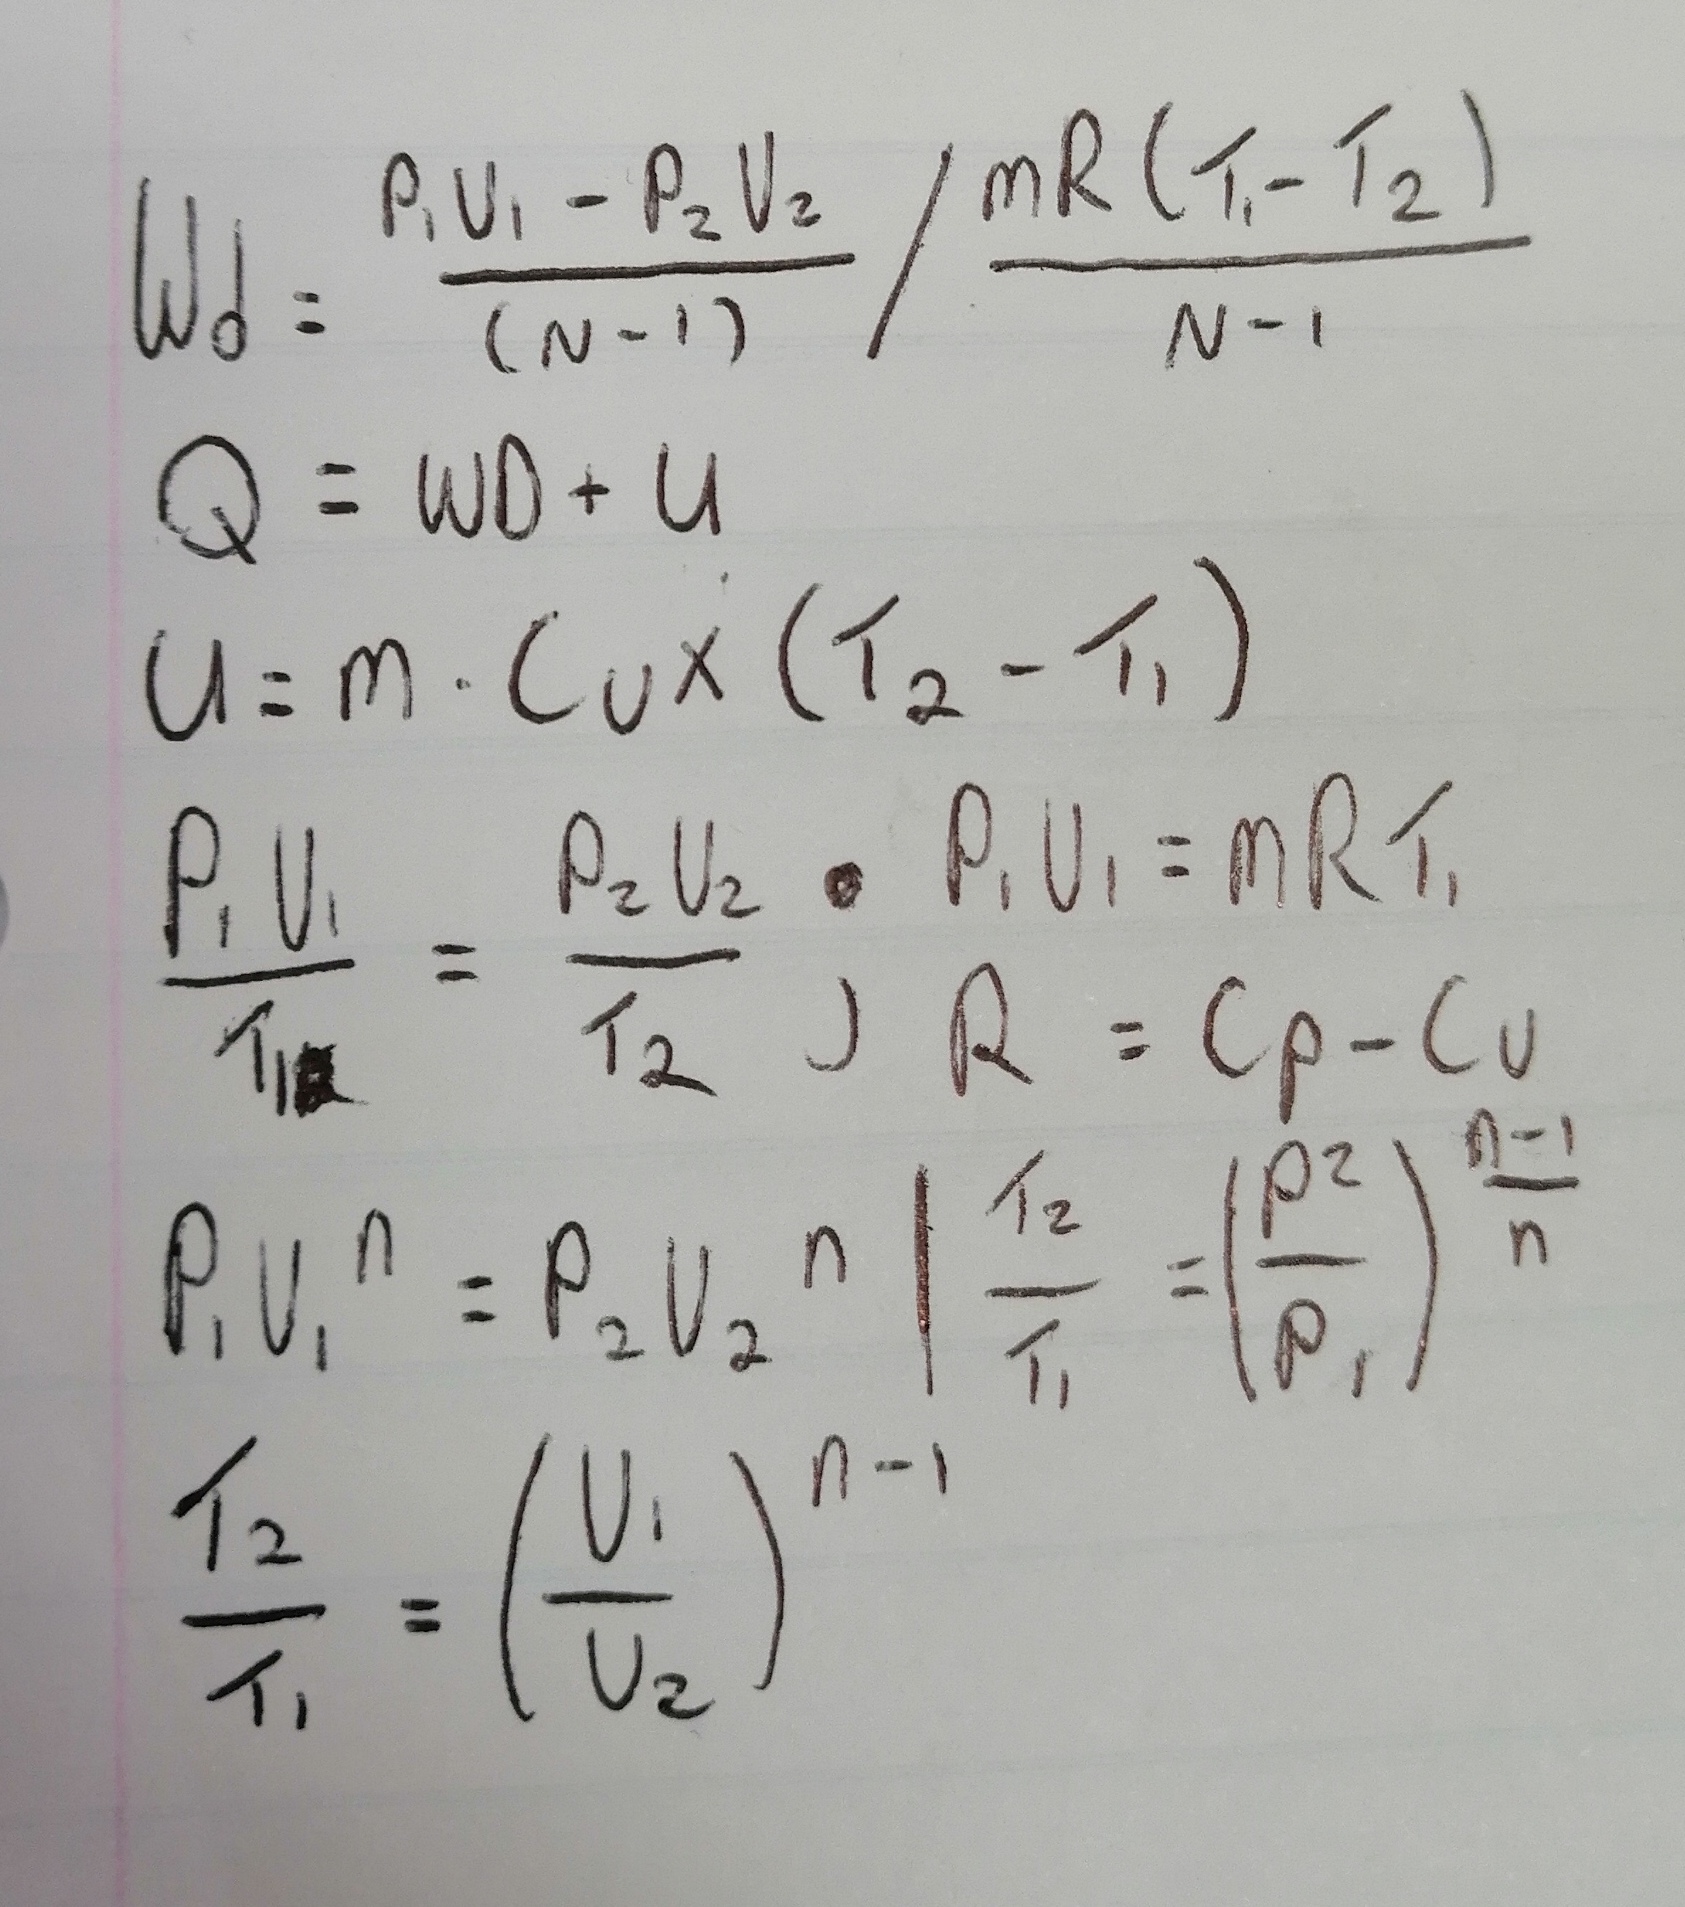 Wd = P₁V₁ - P₂V₂ / (N-1) / mR(T₁-T₂) / N-1
Q = WD + U
U = m · Cv x (T₂ - T₁)
P₁V₁ / T₁ = P₂V₂ / T₂ • P₁V₁ = mRT₁
) R = Cp - Cv
P₁V₁ⁿ = P₂V₂ⁿ | T₂ / T₁ = (P2 / P₁)^(n-1 / n)
T₂ / T₁ = (V₁ / V₂)^(n-1)